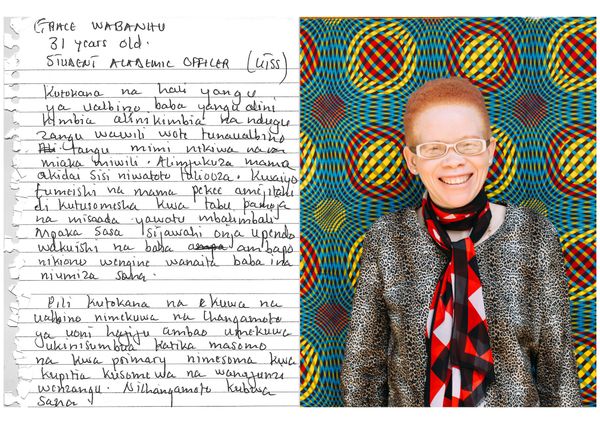 GRACE WABANHU
31 years old.
STUDENT ACADEMIC OFFICER (UTSS)
Kutokana na hali yangu
ya ualbino baba yangu alini
kimbia alinikimbia na ndugu
zangu wawili wote tunaualbino
tangu mimi nikiwa na
miaka miwili. Alimfukuza mama
akidai sisi niwatoto tuliooza. Kwaiyo
tumeishi na mama pekee amejitahi
di kutusomesha kwa tabu pamoja
na misaada yawatu mbalimbali
Mpaka sasa sijawahi onja upendo
wakuishi na baba ambapo
nikiona wengine wanaita baba ina
niumiza sana.
Pili kutokana na kuwa na
ualbino nimekuwa na changamoto
ya uoni hafifu ambao umekuwa
ukinisumbua katika masomo
na kwa primary nimesoma kwa
kupitia kusomewa na wanafunzi
wenzangu. Nichangamoto kubwa
sana